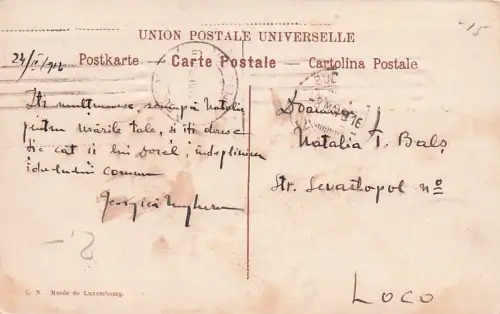 UNION POSTALE UNIVERSELLE
Postkarte — Carte Postale — Cartolina Postale
24/IV/916
Iti mulțumesc, scumpă Natalie
pentru urările tale, și iți doresc
ție cât și lui Dorel, indeplinirea
idealului comun
Doamnei
Natalia T. Balș
Str. Sevastopol nº
LOCO
C. N. Musée de Luxembourg.
-15